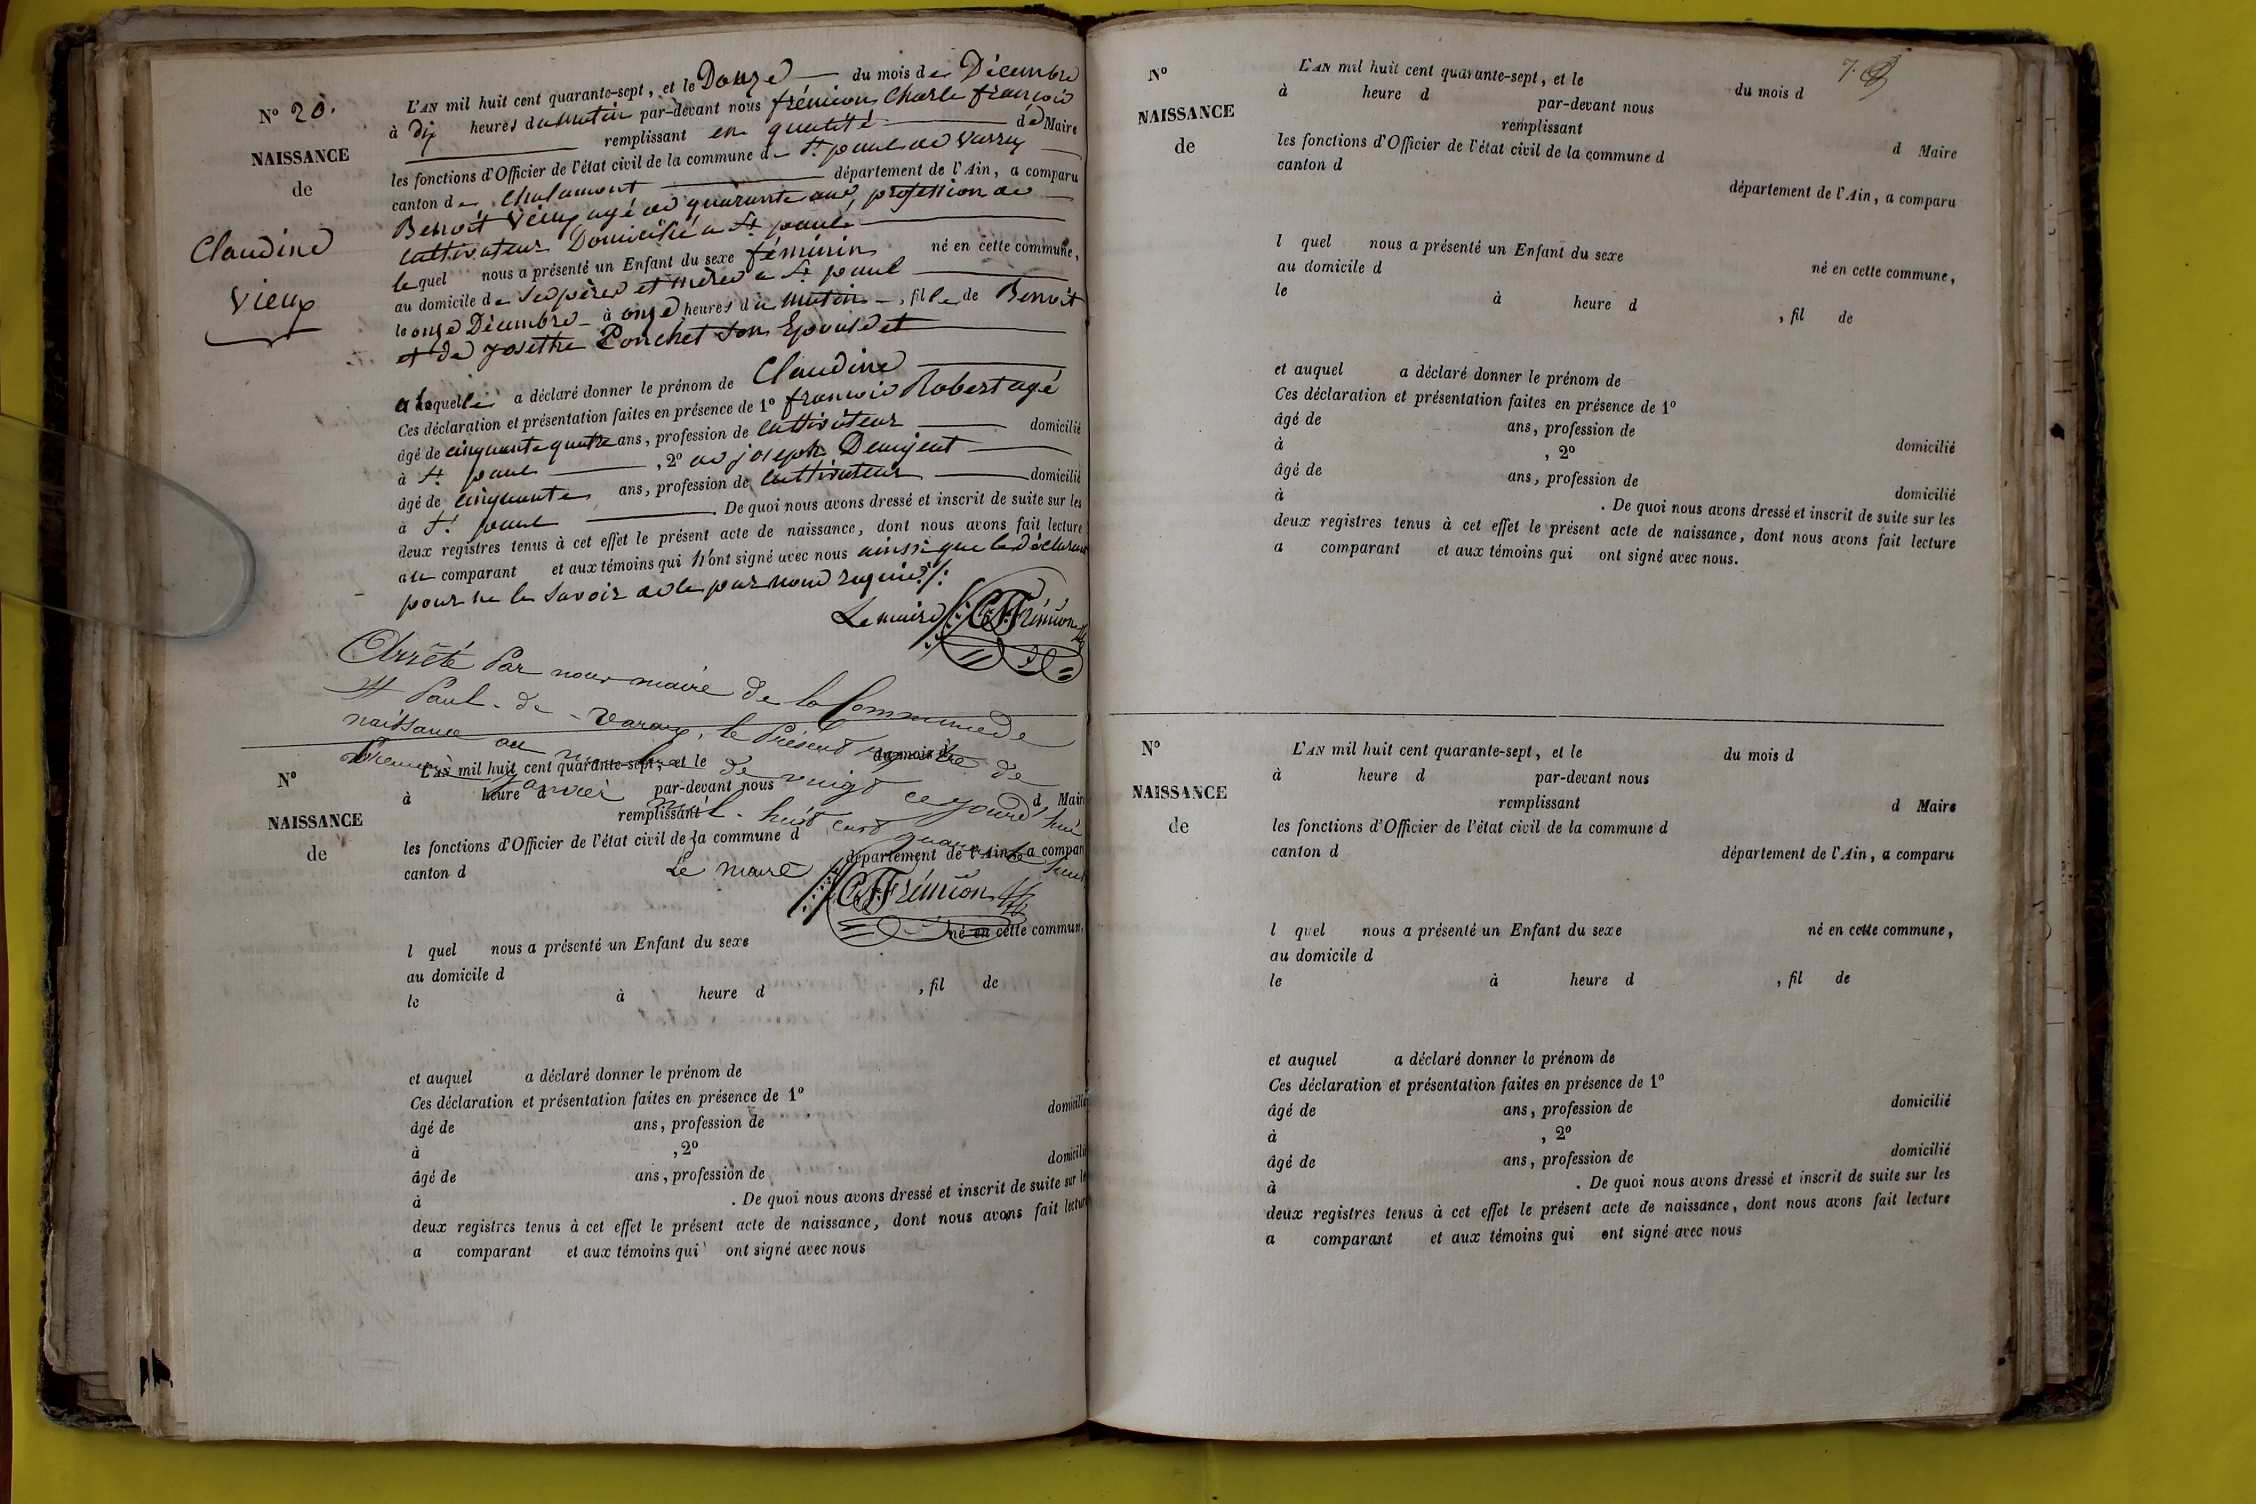 N° 20.
NAISSANCE
de
Claudine
Vieux
L'AN mil huit cent quarante-sept, et le Douze du mois de Décembre
à dix heures du matin par-devant nous frémion Charle françois
remplissant en qualité de Maire
les fonctions d'Officier de l'état civil de la commune de St paul de Varax
canton de Chalamont département de l'Ain, a comparu
Benoit Vieux agé de quarante ans, profession de
cultivateur Domicilié a St paul
lequel nous a présenté un Enfant du sexe féminin né en cette commune,
au domicile de ses père et mère a St paul
le onze Décembre à onze heures du matin, fille de Benoit
et de Josette Ponchet son Epouse et
a laquelle a déclaré donner le prénom de Claudine
Ces déclaration et présentation faites en présence de 1° françois Robert agé
âgé de cinquante quatre ans, profession de cultivateur domicilié
à St paul, 2° de joseph
âgé de cinquante ans, profession de cultivateur domicilié
à St paul. De quoi nous avons dressé et inscrit de suite sur les
deux registres tenus à cet effet le présent acte de naissance, dont nous avons fait lecture
au comparant et aux témoins qui n'ont signé avec nous ainsi que le déclarant
pour ne le savoir de le par nous requis
Le maire CF Frémion
Arrêté Par nous maire de la Commune de
St Paul-de-Varax, le Présent registre de
naissance au nombre de vingt ce jourd'hui
Premier janvier mil-huit cent quarante huit
Le maire CF Frémion
N°
NAISSANCE
de
L'AN mil huit cent quarante-sept, et le du mois d
à heure d par-devant nous
remplissant d Maire
les fonctions d'Officier de l'état civil de la commune d
canton d département de l'Ain, a compar
l quel nous a présenté un Enfant du sexe né en cette commun
au domicile d
le à heure d , fil de
et auquel a déclaré donner le prénom de
Ces déclaration et présentation faites en présence de 1°
âgé de ans, profession de domicilié
à , 2°
âgé de ans, profession de domicilié
à . De quoi nous avons dressé et inscrit de suite sur le
deux registres tenus à cet effet le présent acte de naissance, dont nous avons fait lecture
a comparant et aux témoins qui ont signé avec nous
7.
N°
NAISSANCE
de
L'AN mil huit cent quarante-sept, et le du mois d
à heure d par-devant nous
remplissant d Maire
les fonctions d'Officier de l'état civil de la commune d
canton d département de l'Ain, a comparu
l quel nous a présenté un Enfant du sexe né en cette commune,
au domicile d
le à heure d , fil de
et auquel a déclaré donner le prénom de
Ces déclaration et présentation faites en présence de 1°
âgé de ans, profession de domicilié
à , 2°
âgé de ans, profession de domicilié
à . De quoi nous avons dressé et inscrit de suite sur les
deux registres tenus à cet effet le présent acte de naissance, dont nous avons fait lecture
a comparant et aux témoins qui ont signé avec nous.
N°
NAISSANCE
de
L'AN mil huit cent quarante-sept, et le du mois d
à heure d par-devant nous
remplissant d Maire
les fonctions d'Officier de l'état civil de la commune d
canton d département de l'Ain, a comparu
l quel nous a présenté un Enfant du sexe né en cette commune,
au domicile d
le à heure d , fil de
et auquel a déclaré donner le prénom de
Ces déclaration et présentation faites en présence de 1°
âgé de ans, profession de domicilié
à , 2°
âgé de ans, profession de domicilié
à . De quoi nous avons dressé et inscrit de suite sur les
deux registres tenus à cet effet le présent acte de naissance, dont nous avons fait lecture
a comparant et aux témoins qui ont signé avec nous